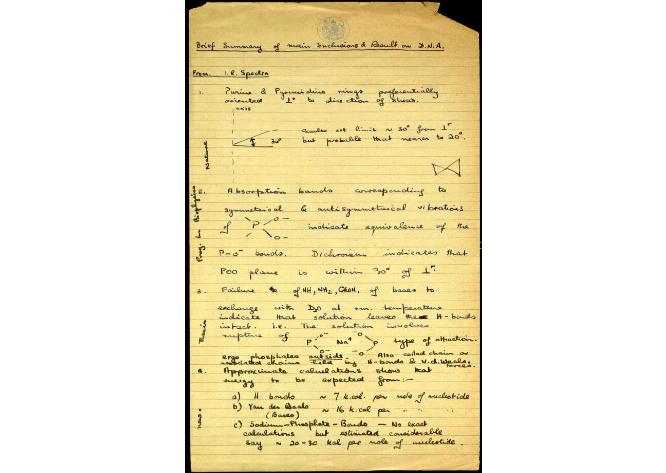 Brief Summary of main Conclusions & Result on D.N.A.
From I.R. Spectra
1. Purine & Pyrimidine rings preferentially
oriented ⊥r to direction of shear.
axis
outer set limit ~ 30° from ⊥r
30° but probable that nearer to 20°.
Nature
2. Absorption bands corresponding to
symmetrical & antisymmetrical vibrations
of P O- O- indicate equivalence of the
P-O- bonds. Dichroism indicates that
POO plane is within 30° of ⊥r.
Prog. in Biophysics
3. Failure of NH, NH2, of bases to
exchange with D2O at rm. temperature
indicate that solution leaves the H-bonds
intact. i.e. The solution involves
rupture of P O- Na+ O- P type of attraction.
ergo phosphates outside. Also called chains or
associated chains held by H-bonds & V.d.Waals forces.
Thesis
4. Approximate calculations shows that
energy to be expected from:-
a) H bonds ~ 7 k.cal. per mole of nucleotide
b) Van der Waals ~ 16 k.cal per " "
(Bases)
c) Sodium-Phosphate-Bonds — No exact
calculations but estimated considerable
say ~ 20-30 kcal per mole of nucleotide.